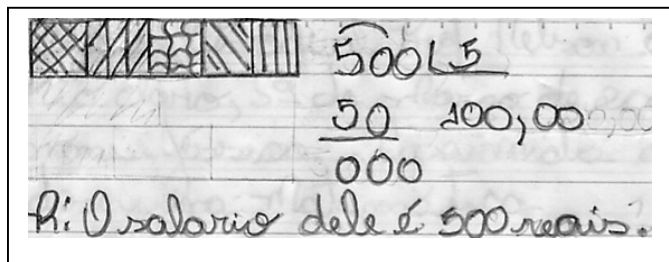 500 5
50 100,00
000
R: O salario dele é 500 reais.